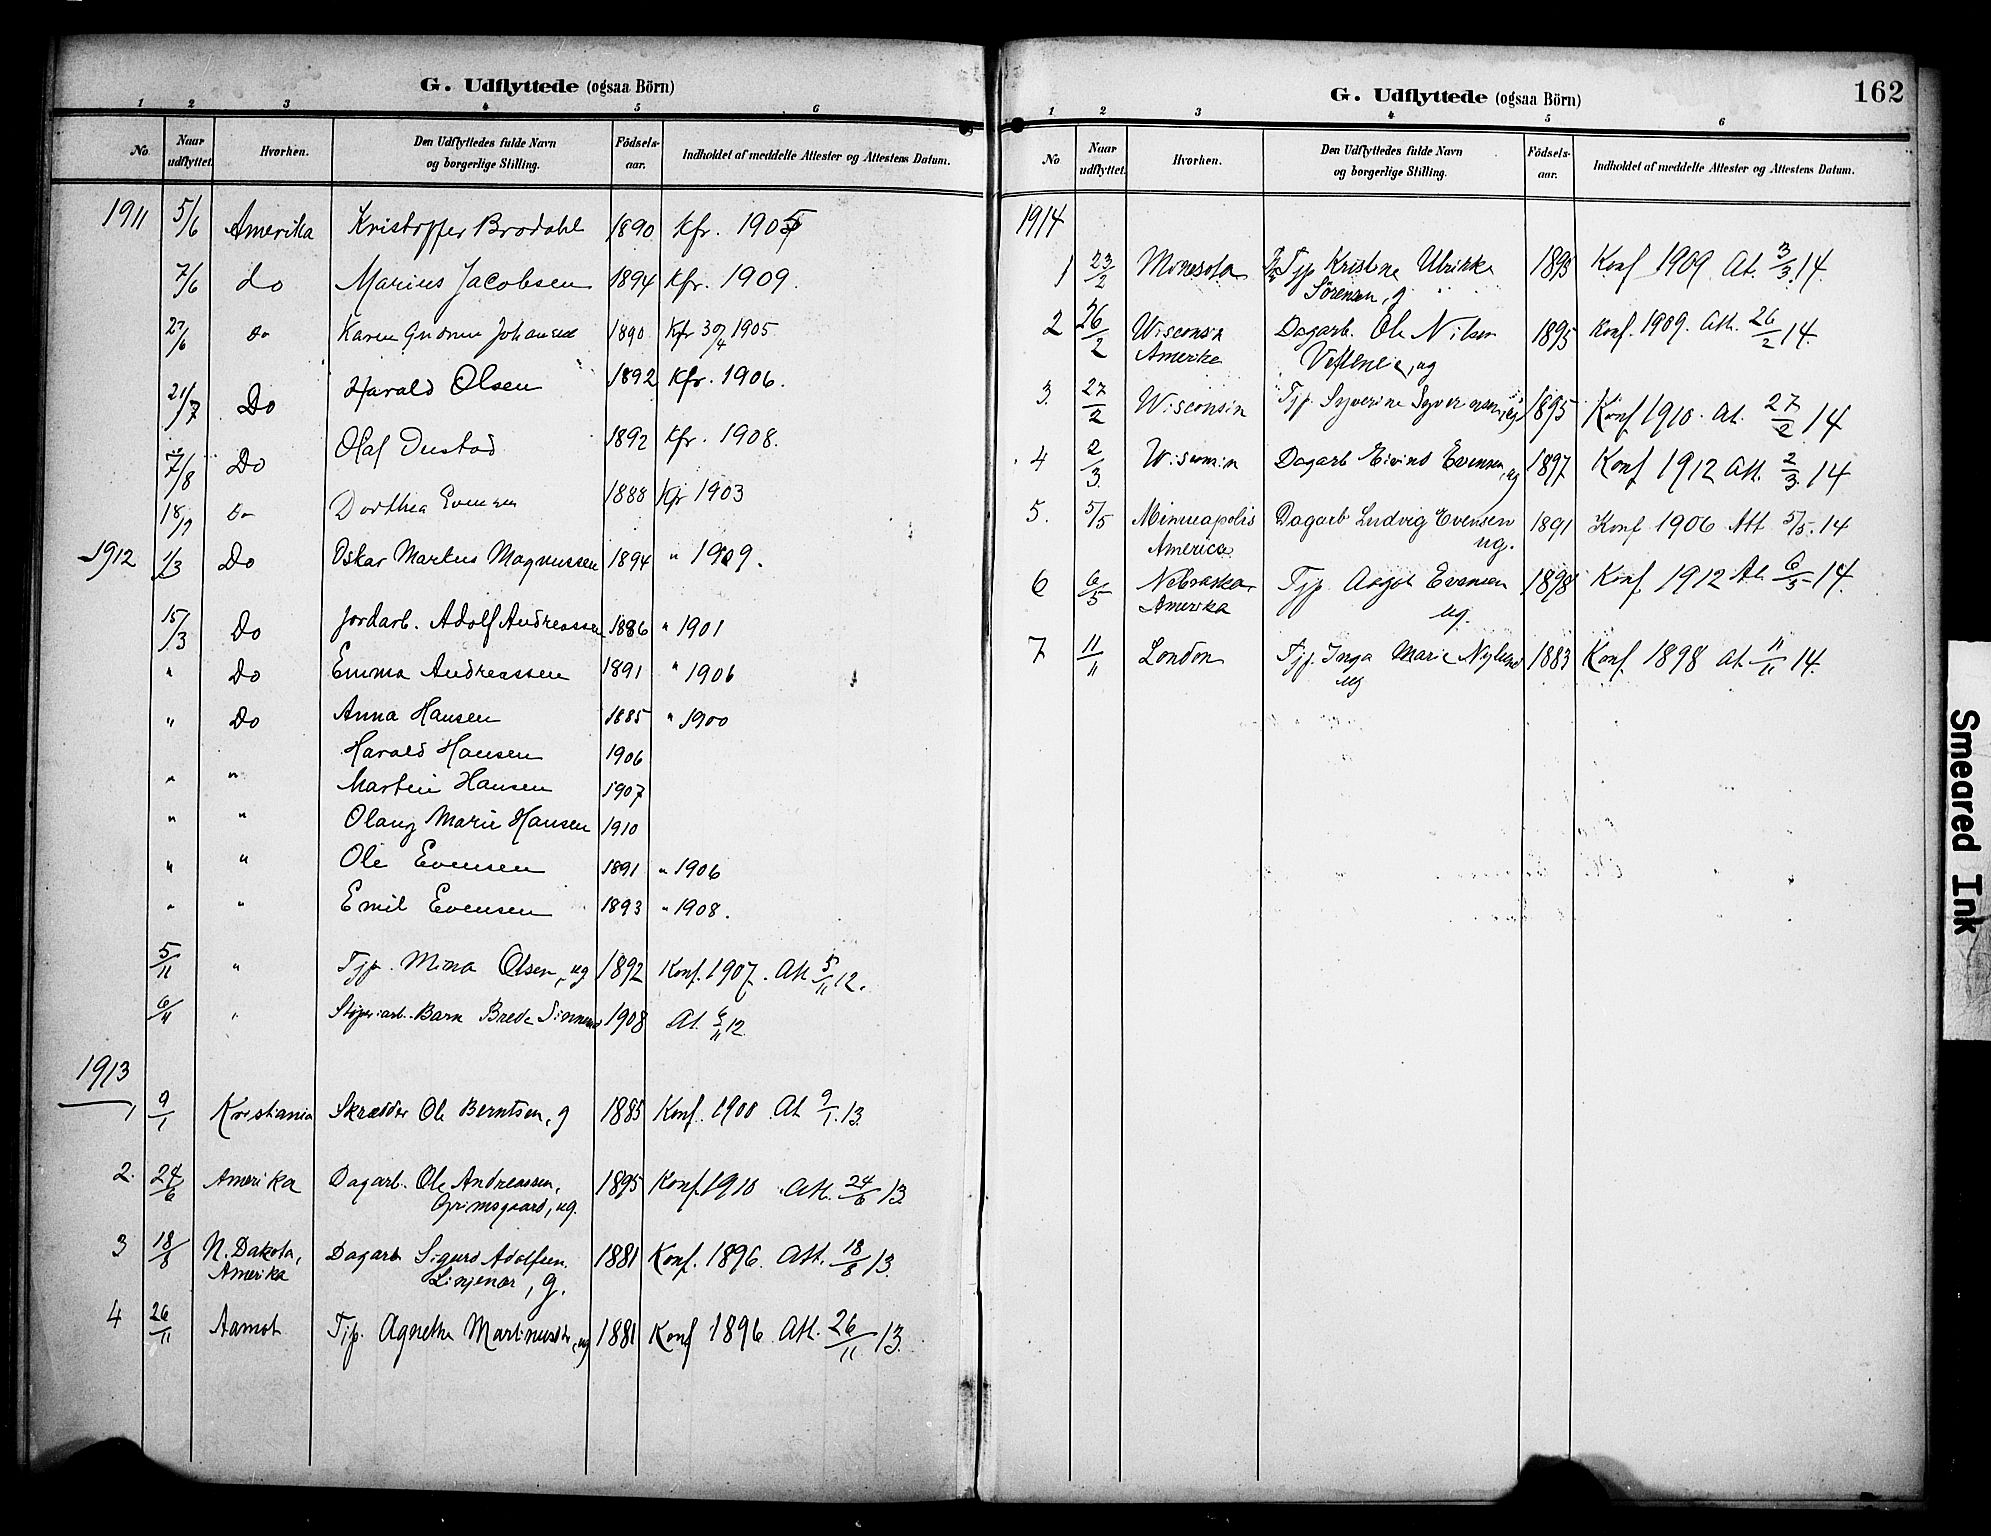 G. Udflyttede (ogsaa Börn)
1 2 3 4 5 6
No. Naar udflyttet. Hvorhen. Den Udflyttedes fulde Navn og borgerlige Stilling. Födselsaar. Indholdet af meddelte Attester og Attestens Datum.
1911 5/6 Amerika Kristoffer Brodahl 1890 Kfr. 1905
7/6 do Marius Jacobsen 1894 Kfr. 1909.
27/6 do Karen Gudrun Johansen 1890 Kfr 30/4 1905
21/7 Do Harald Olsen 1892 Kfr. 1906.
7/8 Do Olaf 1892 Kfr. 1908.
18/9 Do Dorthea Evensen 1888 Kfr 1903
1912 1/3 Do Oskar Markus Magnussen 1894 " 1909.
15/3 Do Jordarb. Adolf Andreassen 1886 " 1901
" Do Emma Andreassen 1891 " 1906
" Do Anna Hansen 1885 " 1900
Harald Hansen 1906
" " Martin Hansen 1907
" " Olaug Marie Hansen 1910
" " Ole Evensen 1891 " 1906
" " Emil Evensen 1893 " 1908.
5/11 " Tjp. Mina Olsen, ug 1892 Konf. 1907. Att 5/11 12.
6/11 " Barn Brede 1908 At. 6/11 12
1913
1 9/1 Kristiania Skrædder Ole Berntsen, g 1885 Konf. 1900 At 9/1. 13.
2. 24/6 Amerika Dagarb. Ole Andreassen, 1895 Konf. 1910 Att. 24/6 13.
Grimsgaard, ug.
3 18/8 N. Dakota, Dagarb Sigurd Adolfsen 1881 Konf. 1896. Att. 18/8 13.
Amerika Linjenar, g.
4 26/11 Aamot Tjp. Agnethe 1881 Konf 1896 Att. 26/11 13.
G. Udflyttede (ogsaa Börn)
162
1 2 3 4 5 6
No. Naar udflyttet. Hvorhen. Den Udflyttedes fulde Navn og borgerlige Stilling. Födselsaar. Indholdet af meddelte Attester og Attestens Datum.
1914
1 23/2 Minesota Tjp Kristine Ulrikke 1895 Konf 1909 At. 3/3. 14.
Sörensen, g
2 26/2 Wisconsin Dagarb. Ole Nilsen 1895 Konf. 1909. Att. 26/2 14.
Amerika ug
3. 27/2 Wisconsin Tjp. Syverine Syversen, ug 1895 Konf 1910. At. 27/2 14
4 2/3. Wisconsin Dagarb Eivind Evensen, ug 1897 Konf 1912 Att. 2/3. 14
5. 5/5 Minneapolis Dagarb Ludvig Evensen 1891 Konf 1906 Att 5/5. 14
America ug.
6 6/5 Nebraska, Tjp. Aagot Evensen 1898 Konf 1912 At. 6/5 14.
Amerika ug.
7 11/11 London Tjp. Inga Marie Nylund 1883 Konf. 1898 At 11/11 14.
ug
Smeared Ink